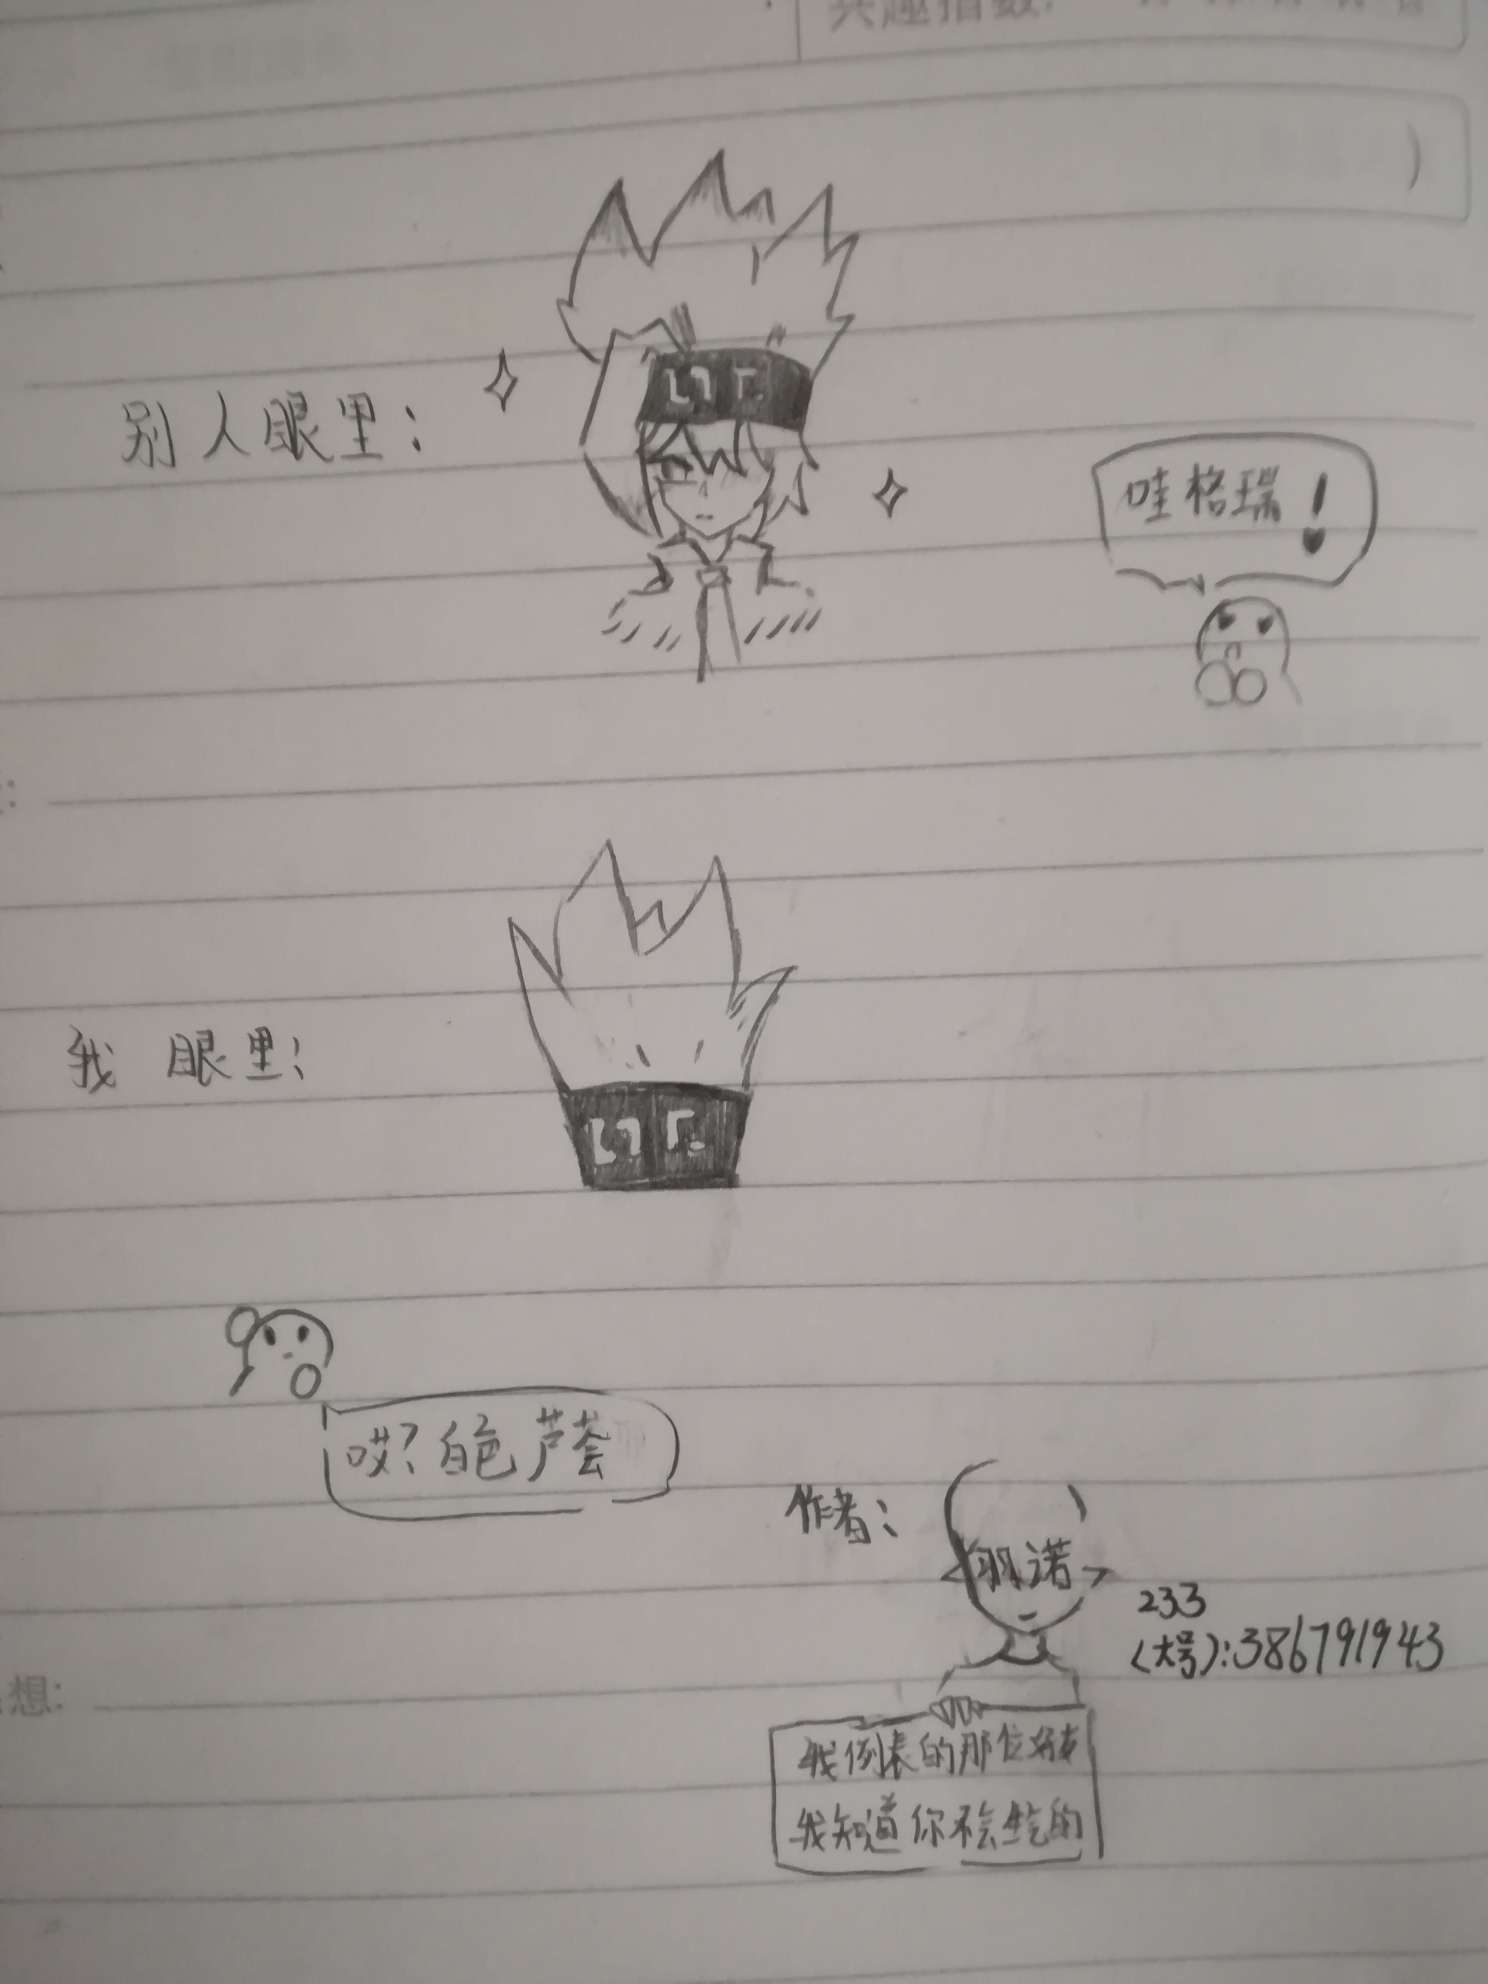 兴趣指数:
别人眼里：
哇格瑞！
我眼里：
哎？白色芦荟
作者：
羽诺
233
(大号):386791943
想:
我例表的那位好友
我知道你不会生气的